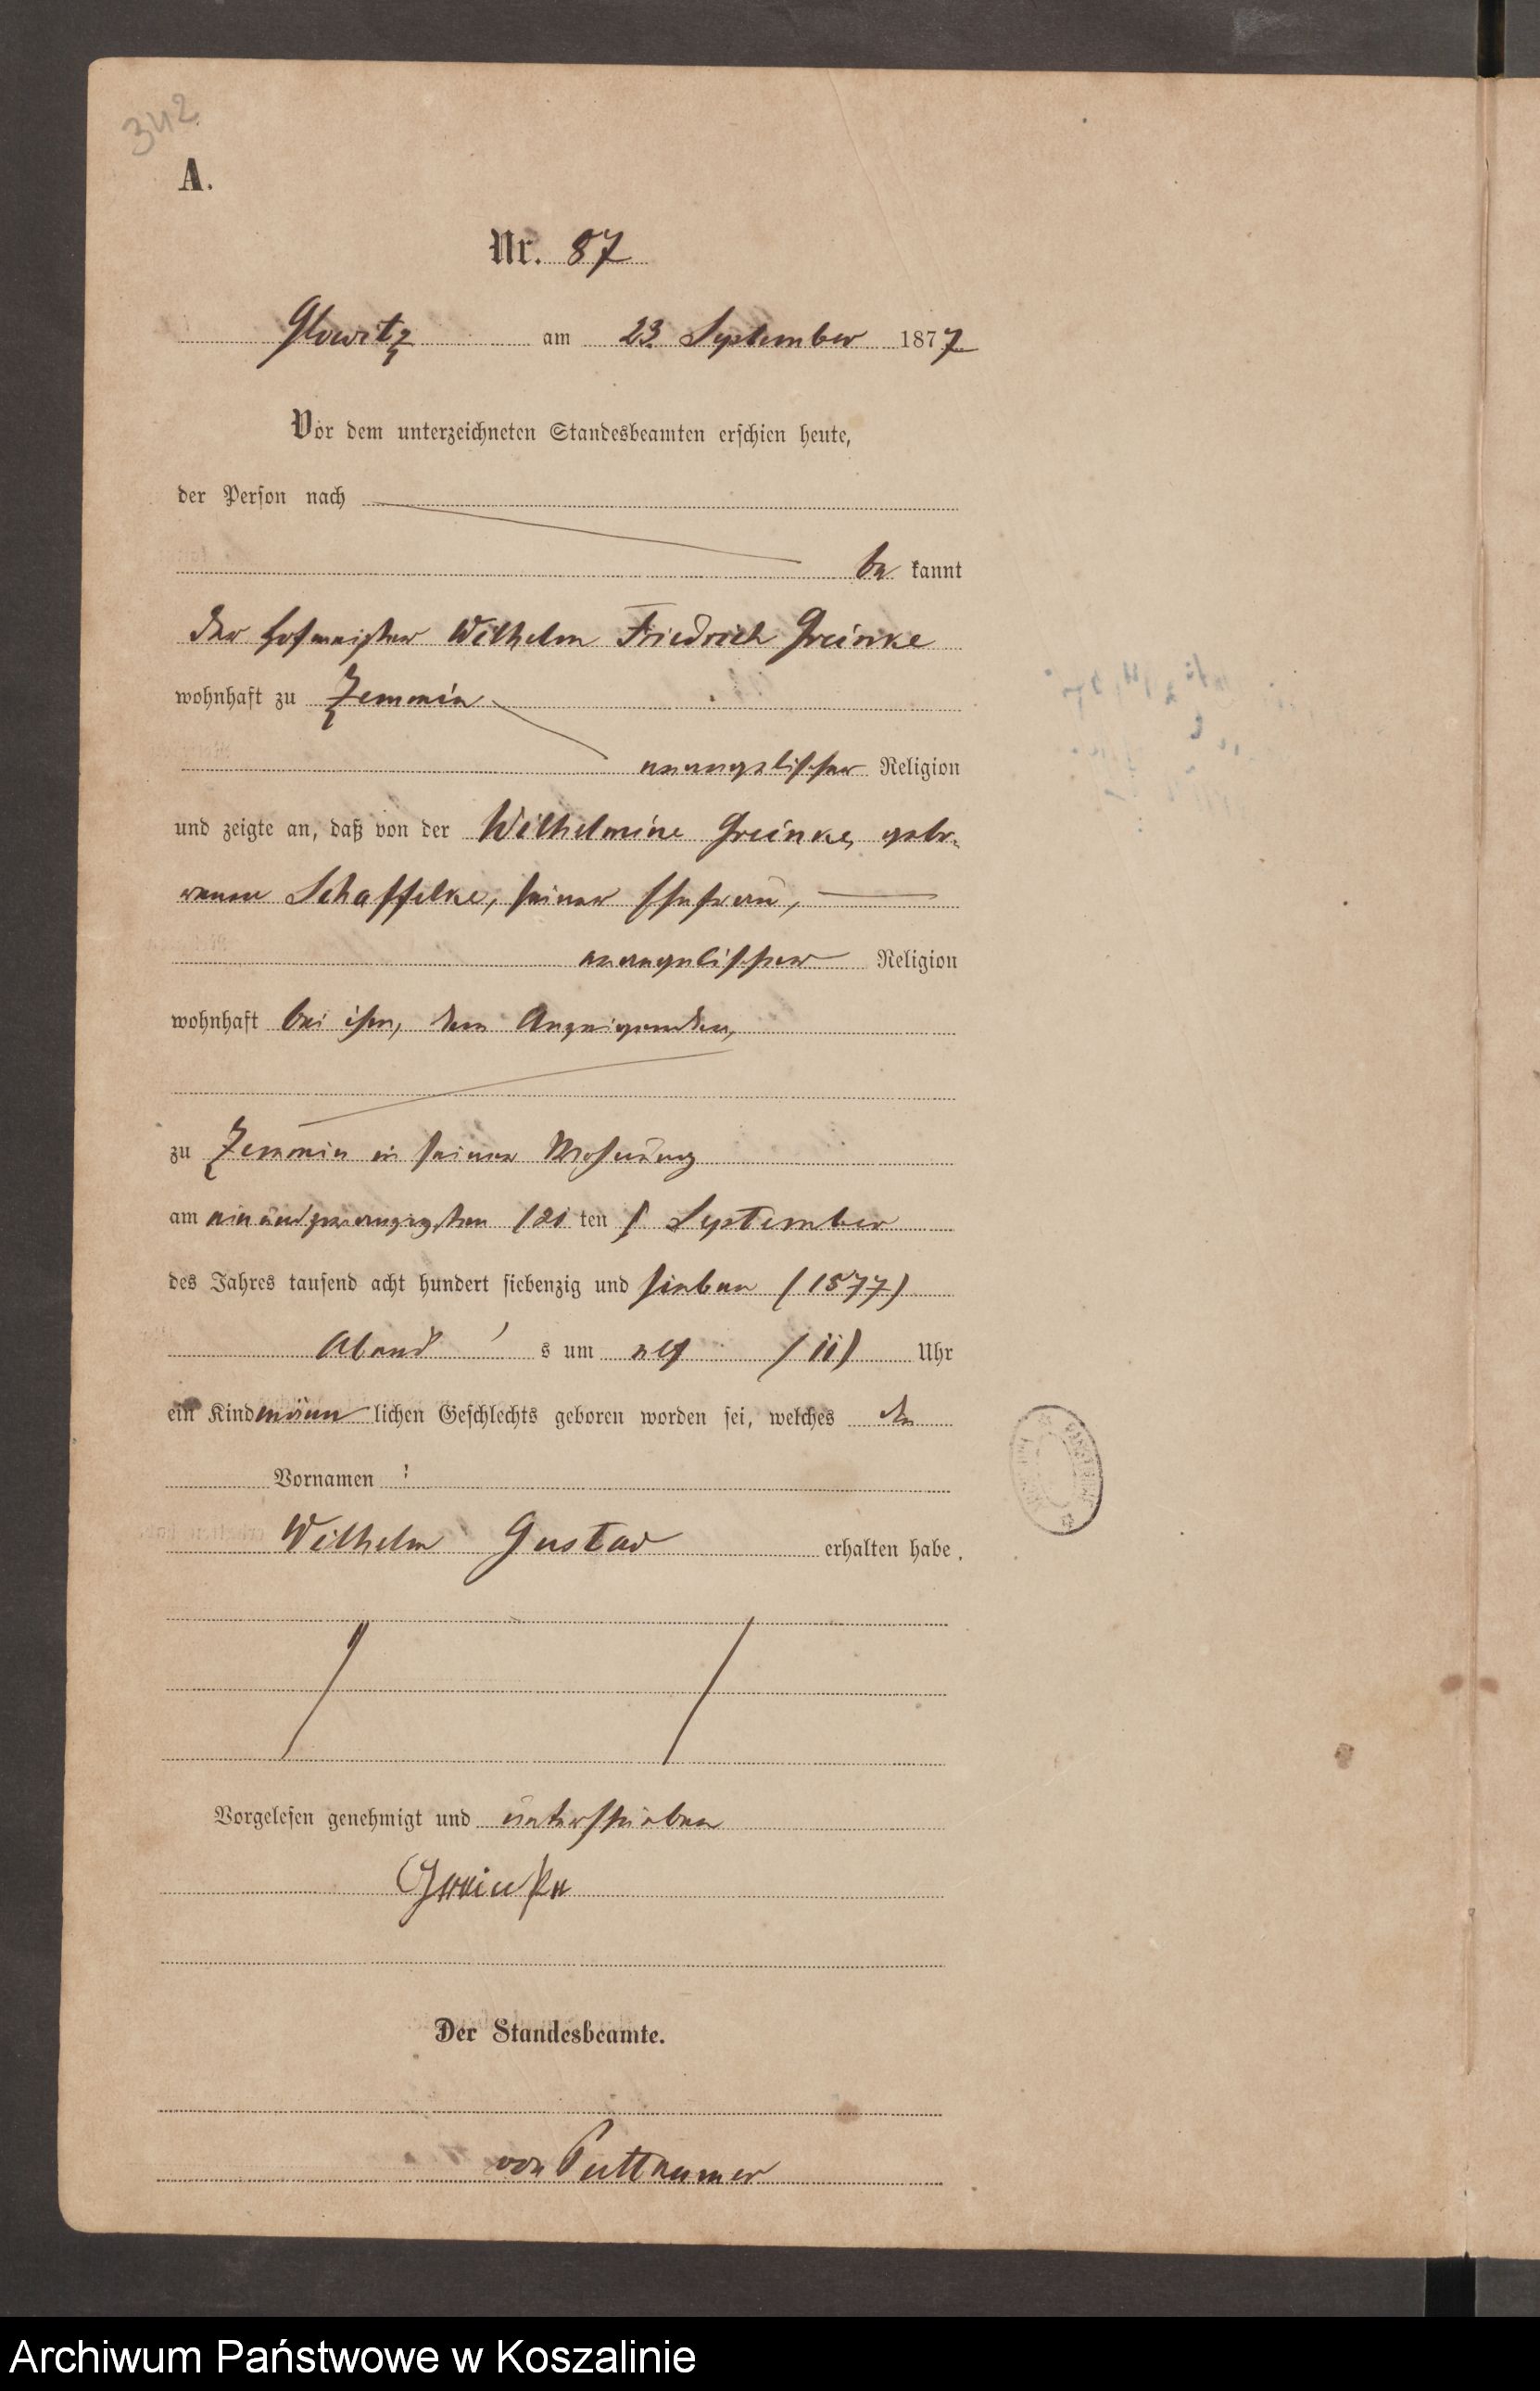 342
A.
Nr. 87
Glowitz am 23. September 1877
Vor dem unterzeichneten Standesbeamten erschien heute,
der Person nach
be kannt
der Hofmeister Wilhelm Friedrich Greinke
wohnhaft zu Zemmin
evangelischer Religion
und zeigte an, daß von der Wilhelmine Greinke, gebo-
renen Schaffelke, seiner Ehefrau,
evangelischer Religion
wohnhaft bei ihm, dem Anzeigenden,
zu Zemmin in seiner Wohnung
am einundzwanzigsten (21 ten) September
des Jahres tausend acht hundert siebenzig und sieben (1877)
Abend s um elf (11) Uhr
ein Kind männ lichen Geschlechts geboren worden sei, welches die
Vornamen :
Wilhelm Gustav erhalten habe.
Vorgelesen genehmigt und unterschrieben
Greinke
Der Standesbeamte.
von Puttkamer
Archiwum Państwowe w Koszalinie